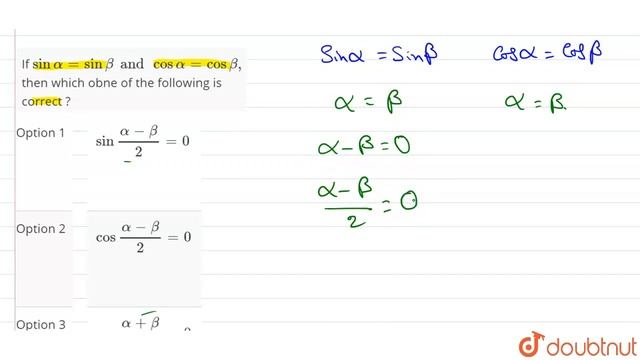 If sin α = sin β and cos α = cos β,
then which obne of the following is
correct ?
Option 1 sin (α − β)/2 = 0
Option 2 cos (α − β)/2 = 0
Option 3 α + β
Sinα = Sinβ Cosα = Cosβ
α = β α = β
α − β = 0
(α − β)/2 = 0
doubtnut